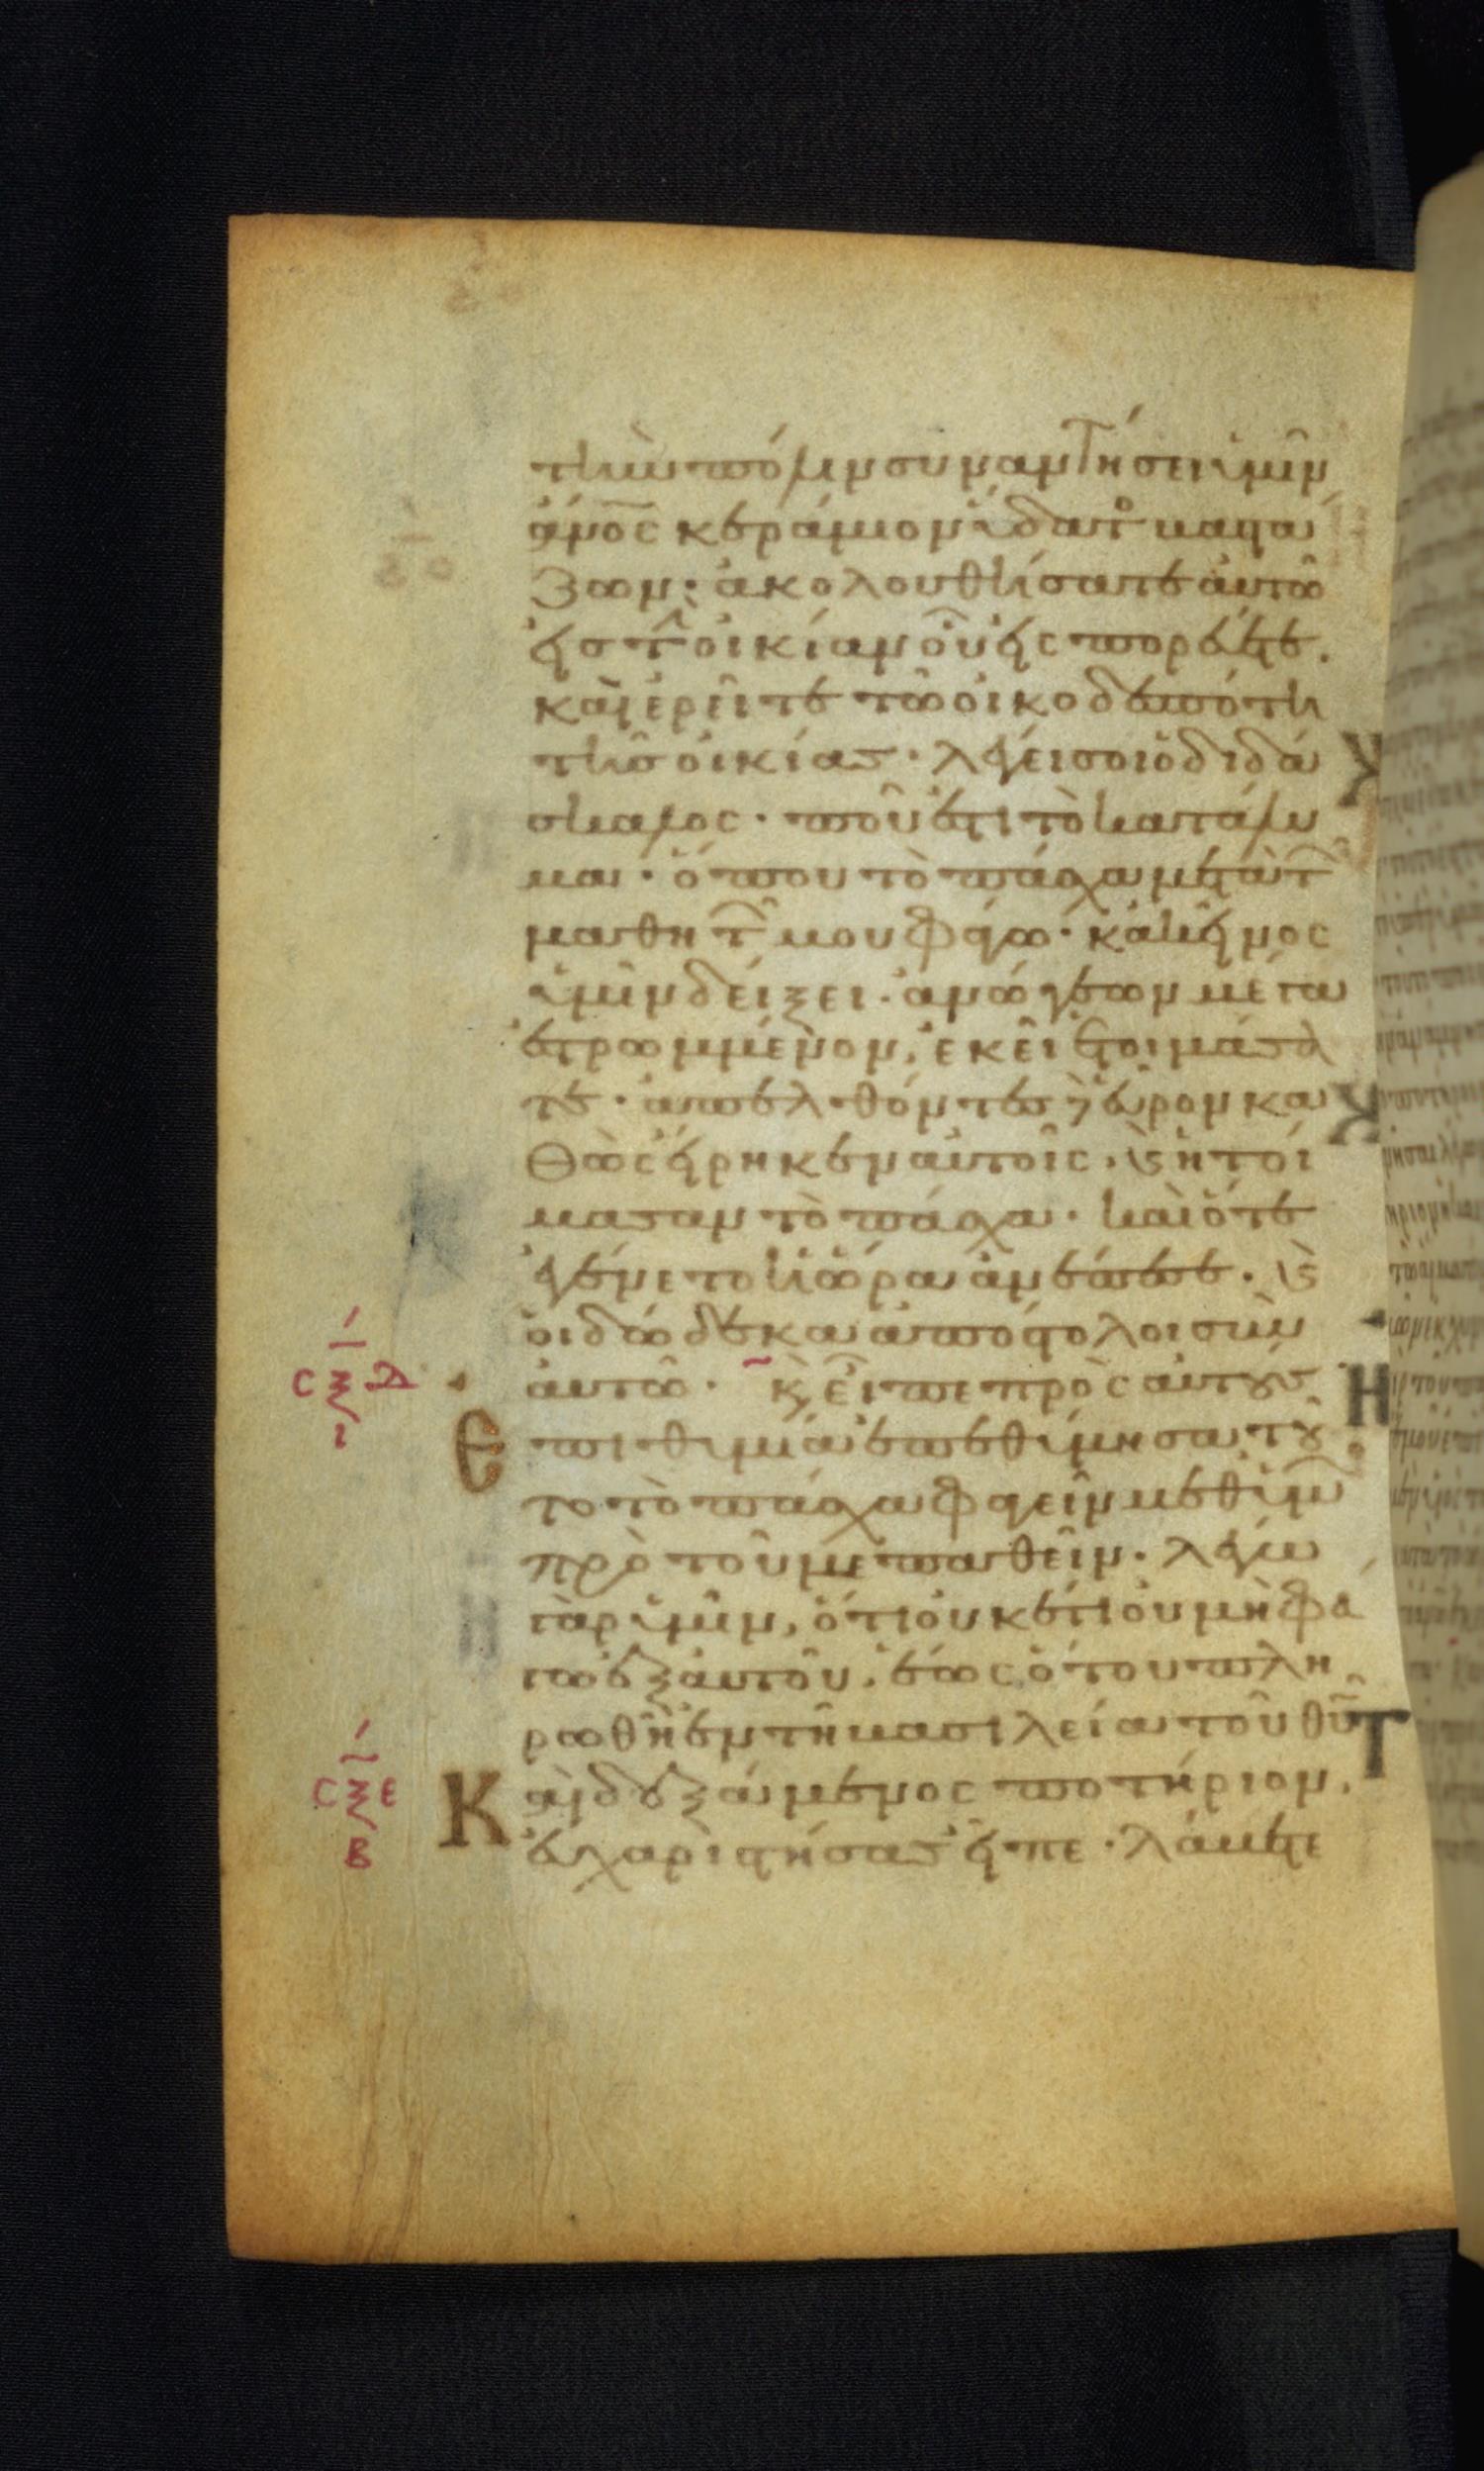 τὴν πόλιν συναντήσει ὑμῖν
ἄνος κεράμιον ὕδατ βαστά
ζων· ἀκολουθήσατε αὐτῶ
εἰς τ οἰκίαν οὗ εἰσπορεύετε.
καὶ ἐρεῖτε τῶ οἰκοδεσπότη
τῆς οἰκίας· λέγει σοι ὁ διδά
σκαλος· ποῦ ἐστι τὸ κατάλυ
μα· ὅπου τὸ πάσχα μετὰ τ
μαθητ μου φάγω· κἀκεῖνος
ὑμῖν δείξει· ἀνώγεων μέγα
ἐστρωμμένον, ἐκεῖ ἑτοιμάσα
τε· ἀπελθόντες δὲ εὗρον κα
θὼς εἴρηκεν αὐτοῖς· καὶ ἡτοί
μασαν τὸ πάσχα· καὶ ὅτε
ἐγένετο ἡ ὥρα ἀνέπεσε· καὶ
οἱ δώδεκα ἀπόστολοι σὺν
αὐτῶ· κ εἶπε πρὸς αὐτούς
Ἐπιθυμία ἐπεθύμησα τοῦ
το τὸ πάσχα φαγεῖν μεθ ὑμ
πρὸ τοῦ με παθεῖν· λέγω
γὰρ ὑμῖν, ὅτι οὐκέτι οὐ μὴ φά
γω ἐξ αὐτοῦ, ἕως ὅτου πλη
ρωθῆ ἐν τῆ βασιλεία τοῦ θυ
Καὶ δεξάμενος ποτήριον,
εὐχαριστήσας εἶπε· λάβετε
CΞΔ
CΞΕ
Β